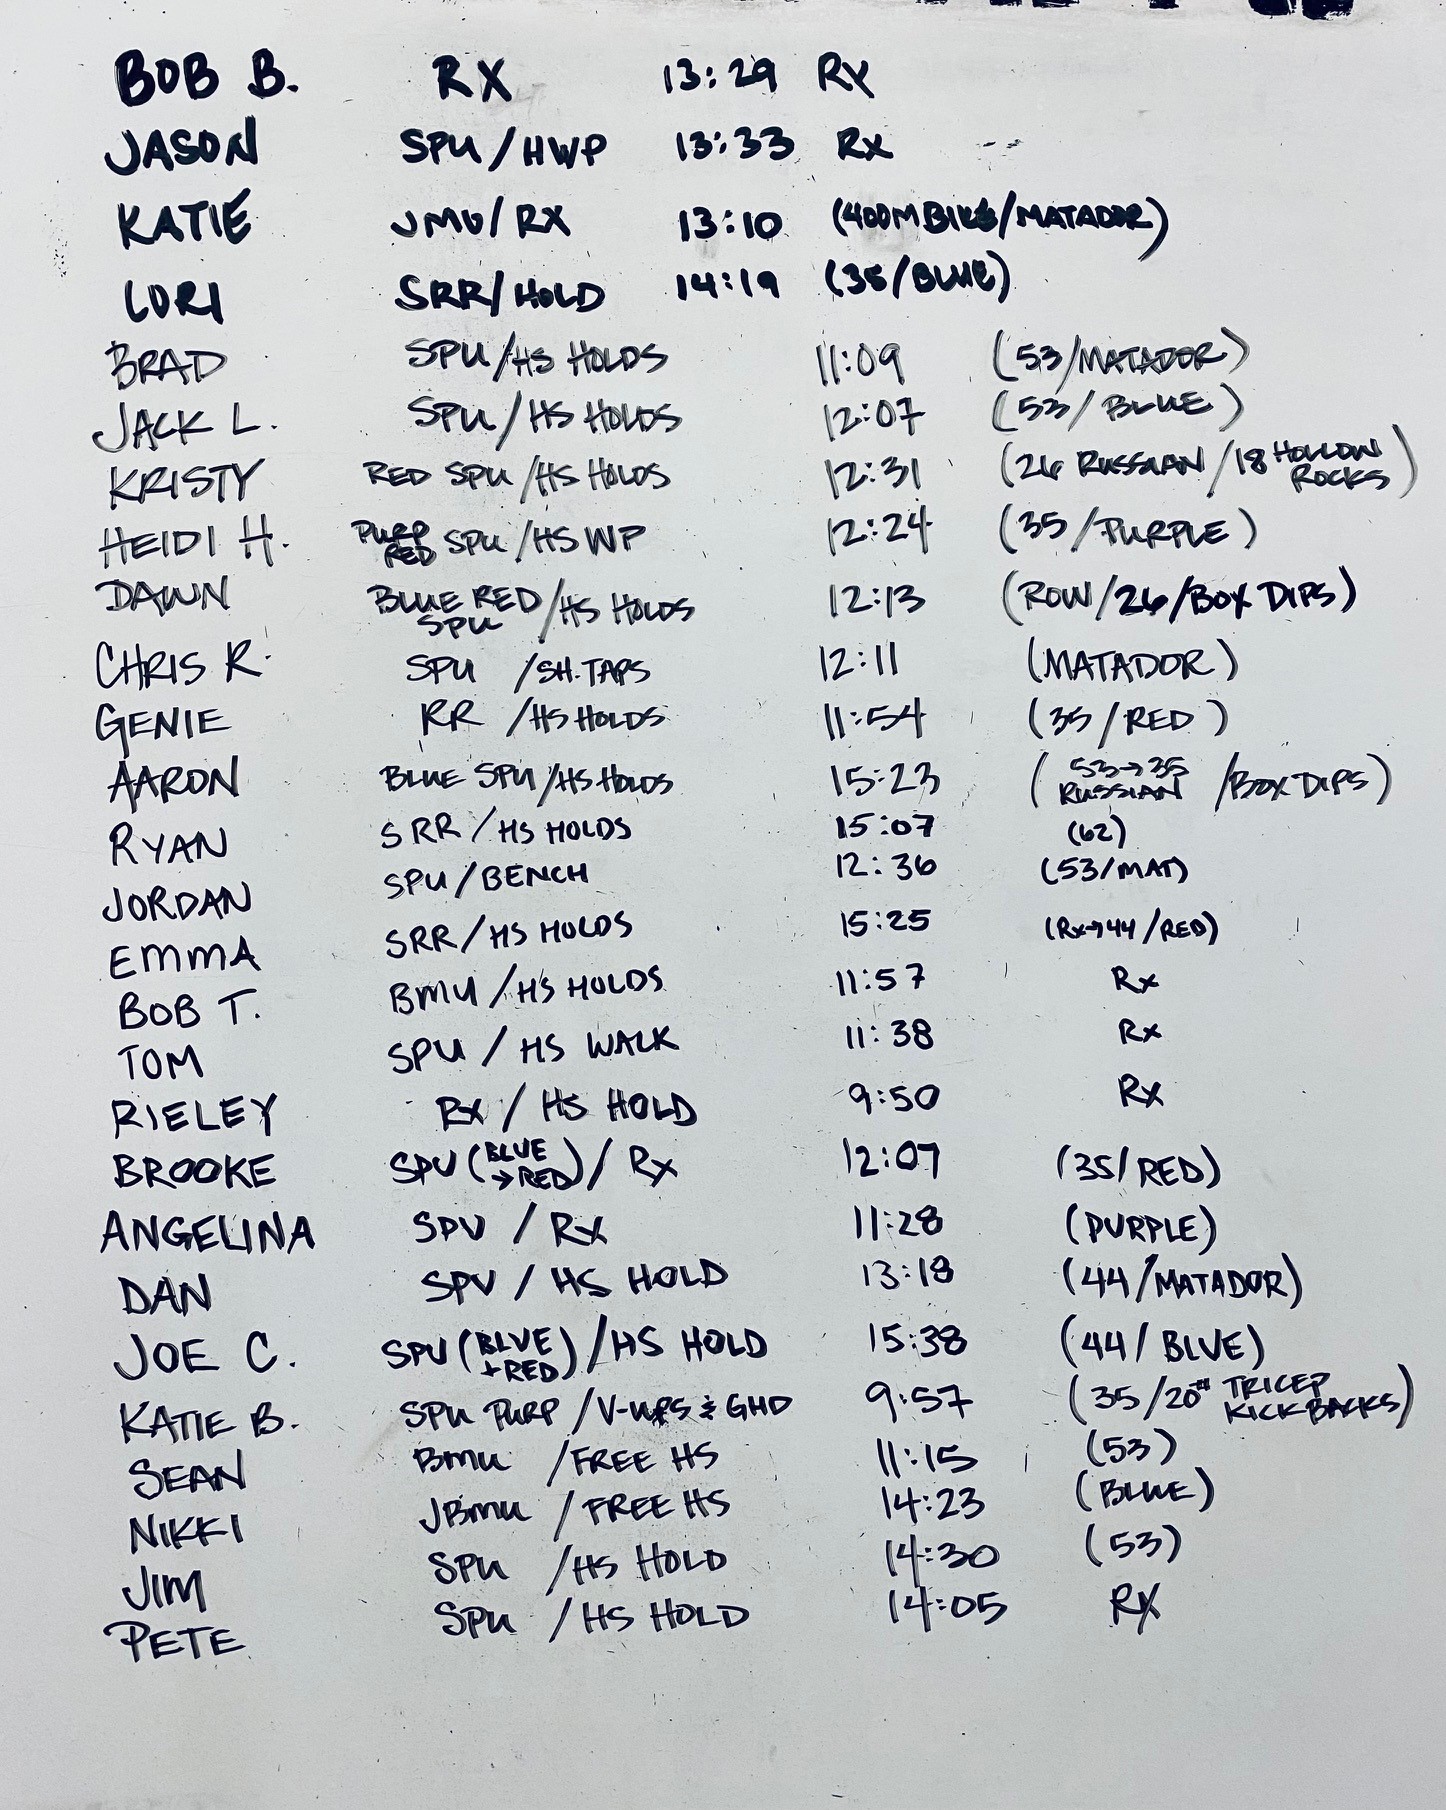 BOB B. RX 13:29 RX
JASON SPU/HWP 13:33 RX
KATIE JMU/RX 13:10 (400M BIKE/MATADOR)
LORI SRR/HOLD 14:19 (35/BLUE)
BRAD SPU/HS HOLDS 11:09 (53/MATADOR)
JACK L. SPU/HS HOLDS 12:07 (53/BLUE)
KRISTY RED SPU/HS HOLDS 12:31 (26 RUSSIAN/18 HOLLOW ROCKS)
HEIDI H. PURP RED SPU/HS WP 12:24 (35/PURPLE)
DAWN BLUE RED SPU/HS HOLDS 12:13 (ROW/26/BOX DIPS)
CHRIS R. SPU /SH.TAPS 12:11 (MATADOR)
GENIE RR /HS HOLDS 11:54 (35/RED)
AARON BLUE SPU/HS HOLDS 15:23 (53→35 RUSSIAN /BOX DIPS)
RYAN SRR/HS HOLDS 15:07 (62)
JORDAN SPU/BENCH 12:36 (53/MAT)
EMMA SRR/HS HOLDS 15:25 (RX→44/RED)
BOB T. BMU/HS HOLDS 11:57 Rx
TOM SPU/HS WALK 11:38 Rx
RIELEY Rx/HS HOLD 9:50 Rx
BROOKE SPU (BLUE →RED)/Rx 12:07 (35/RED)
ANGELINA SPU/Rx 11:28 (PURPLE)
DAN SPU/HS HOLD 13:18 (44/MATADOR)
JOE C. SPU (BLUE +RED)/HS HOLD 15:38 (44/BLUE)
KATIE B. SPU PURP/V-UPS & GHD 9:57 (35/20# TRICEP KICKBACKS)
SEAN BMU /FREE HS 11:15 (53)
NIKKI JBMU /FREE HS 14:23 (BLUE)
JIM SPU /HS HOLD 14:30 (53)
PETE SPU /HS HOLD 14:05 RX